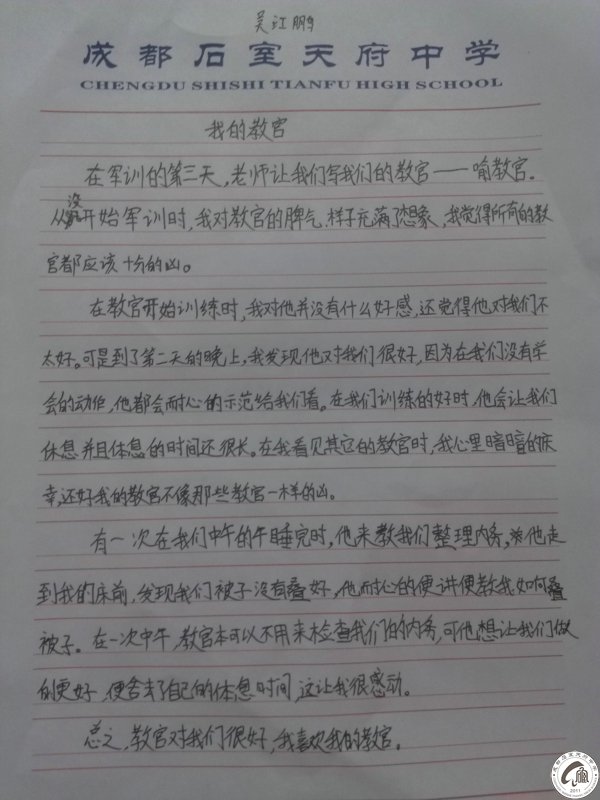 吴江鹏
成都石室天府中学
CHENGDU SHISHI TIANFU HIGH SCHOOL
我的教官
在军训的第三天,老师让我们写我们的教官——喻教官。
从没开始军训时,我对教官的脾气.样子充满了想象,我觉得所有的教
官都应该十分的凶。
在教官开始训练时,我对他并没有什么好感,还觉得他对我们不
太好。可是到了第二天的晚上,我发现他对我们很好,因为在我们没有学
会的动作,他都会耐心的示范给我们看。在我们训练的好时,他会让我们
休息并且休息的时间还很长。在我看见其它的教官时,我心里暗暗的庆
幸,还好我的教官不像那些教官一样的凶。
有一次在我们中午的午睡完时,他来教我们整理内务,当他走
到我的床前,发现我们被子没有叠好,他耐心的便讲便教我如何叠
被子。在一次中午,教官本可以不用来检查我们的内务,可他想让我们做
倒更好,便舍去了自己的休息时间,这让我很感动。
总之,教官对我们很好,我喜欢我的教官。